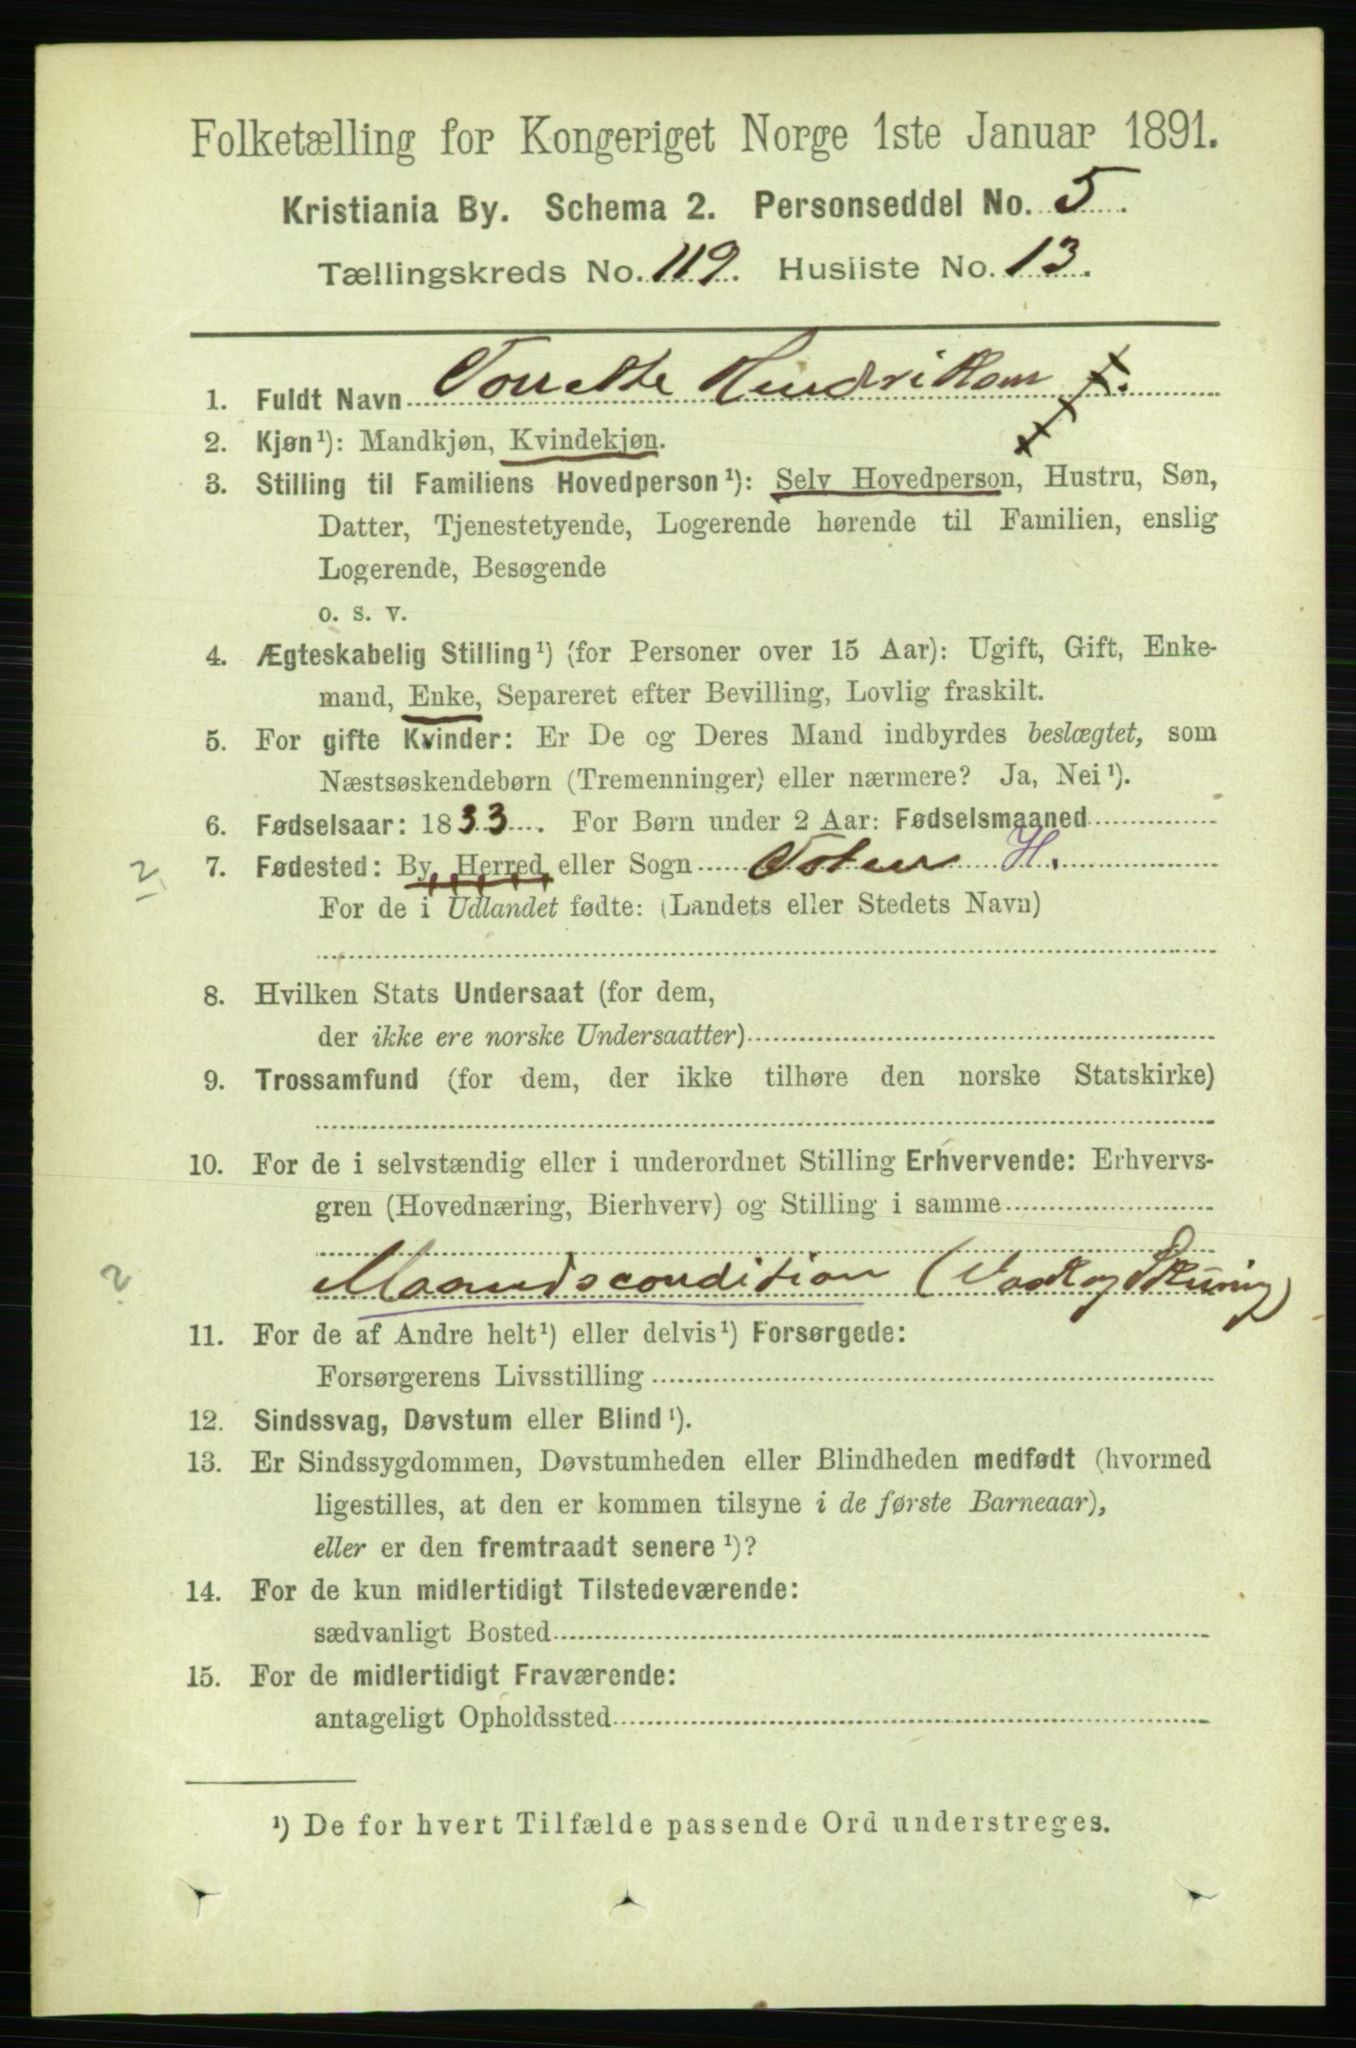 Folketælling for Kongeriget Norge 1ste Januar 1891.
Kristiania By. Schema 2. Personseddel No. 5.
Tællingskreds No. 119. Husliste No. 13.
1. Fuldt Navn
2. Kjøn¹): Mandkjøn, Kvindekjøn.
3. Stilling til Familiens Hovedperson¹): Selv Hovedperson, Hustru, Søn,
Datter, Tjenestetyende, Logerende hørende til Familien, enslig
Logerende, Besøgende
o. s. v.
4. Ægteskabelig Stilling¹) (for Personer over 15 Aar): Ugift, Gift, Enke-
mand, Enke, Separeret efter Bevilling, Lovlig fraskilt.
5. For gifte Kvinder: Er De og Deres Mand indbyrdes beslægtet, som
Næstsøskendebørn (Tremenninger) eller nærmere? Ja, Nei¹).
6. Fødselsaar: 1833. For Børn under 2 Aar: Fødselsmaaned
2
7. Fødested: By, Herred, eller Sogn Toten H.
For de i Udlandet fødte: (Landets eller Stedets Navn)
8. Hvilken Stats Undersaat (for dem,
der ikke ere norske Undersaatter)
9. Trossamfund (for dem, der ikke tilhøre den norske Statskirke)
10. For de i selvstændig eller i underordnet Stilling Erhvervende: Erhvervs-
gren (Hovednæring, Bierhverv) og Stilling i samme
2
Maanedscondition (Vask og Skuring)
11. For de af Andre helt¹) eller delvis¹) Forsørgede:
Forsørgerens Livsstilling
12. Sindssvag, Døvstum eller Blind¹).
13. Er Sindssygdommen, Døvstumheden eller Blindheden medfødt (hvormed
ligestilles, at den er kommen tilsyne i de første Barneaar),
eller er den fremtraadt senere¹)?
14. For de kun midlertidigt Tilstedeværende:
sædvanligt Bosted
15. For de midlertidigt Fraværende:
antageligt Opholdssted
¹) De for hvert Tilfælde passende Ord understreges.